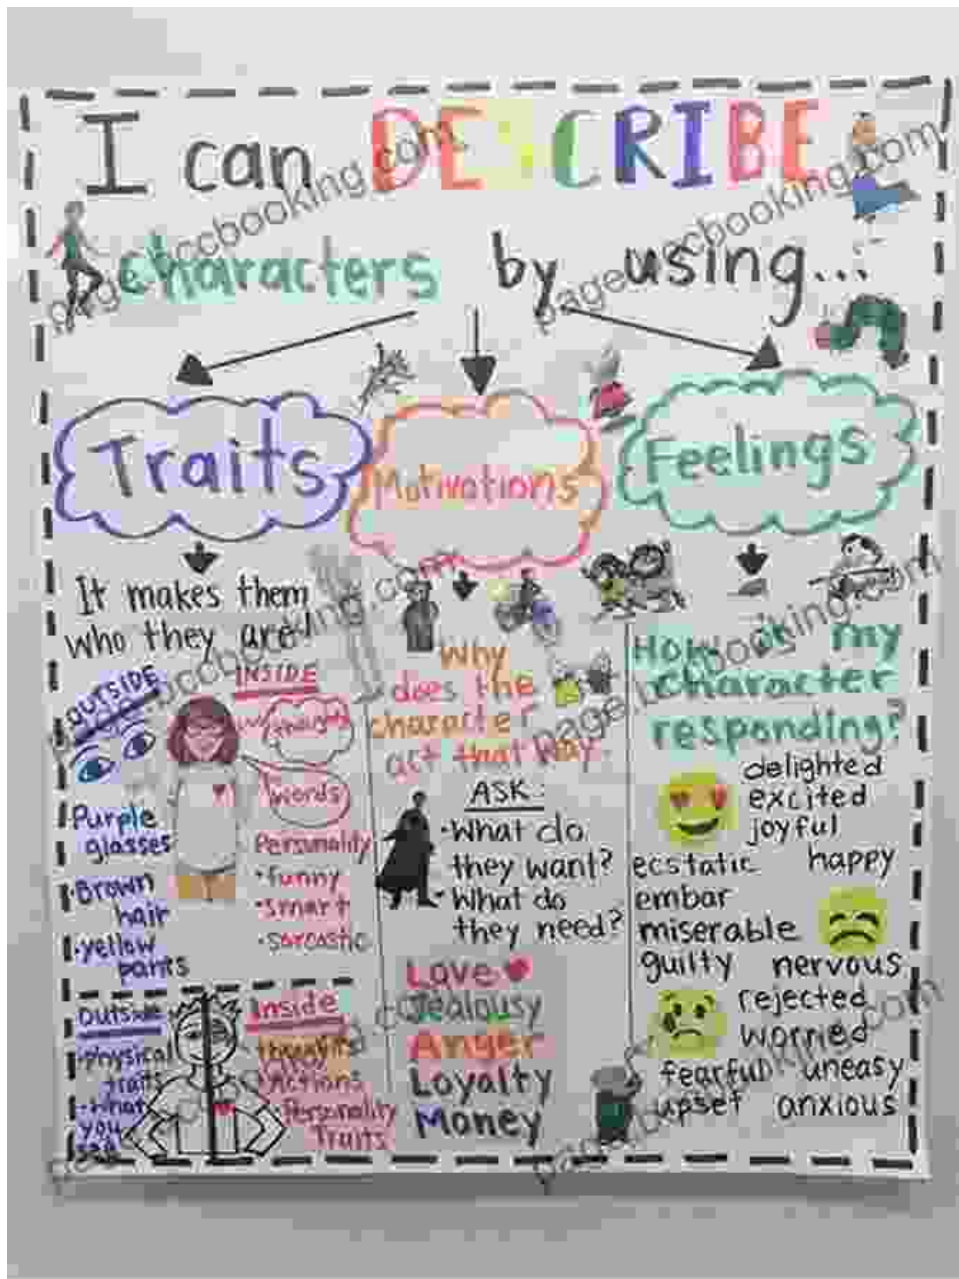 I can DESCRIBE
characters by using...
Traits
Motivations
Feelings
It makes them
who they are!
OUTSIDE
INSIDE
thoughts
words
Purple
glasses
Brown
hair
yellow
pants
Personality
•funny
•smart
•sarcastic
Outside
•physical
traits
•what
you
see
Inside
thoughts
Actions
•Personality
Traits
Why
does the
character
act that way
ASK:
•What do
they want?
•What do
they need?
Love
Jealousy
Anger
Loyalty
Money
How is my
character
responding?
delighted
excited
joyful
ecstatic happy
embar
miserable
guilty nervous
rejected
worried
fearful uneasy
upset anxious
page.pccbooking.com
page.pccbooking.com
page.pccbooking.com
page.pccbooking.com
page.pccbooking.com
page.pccbooking.com